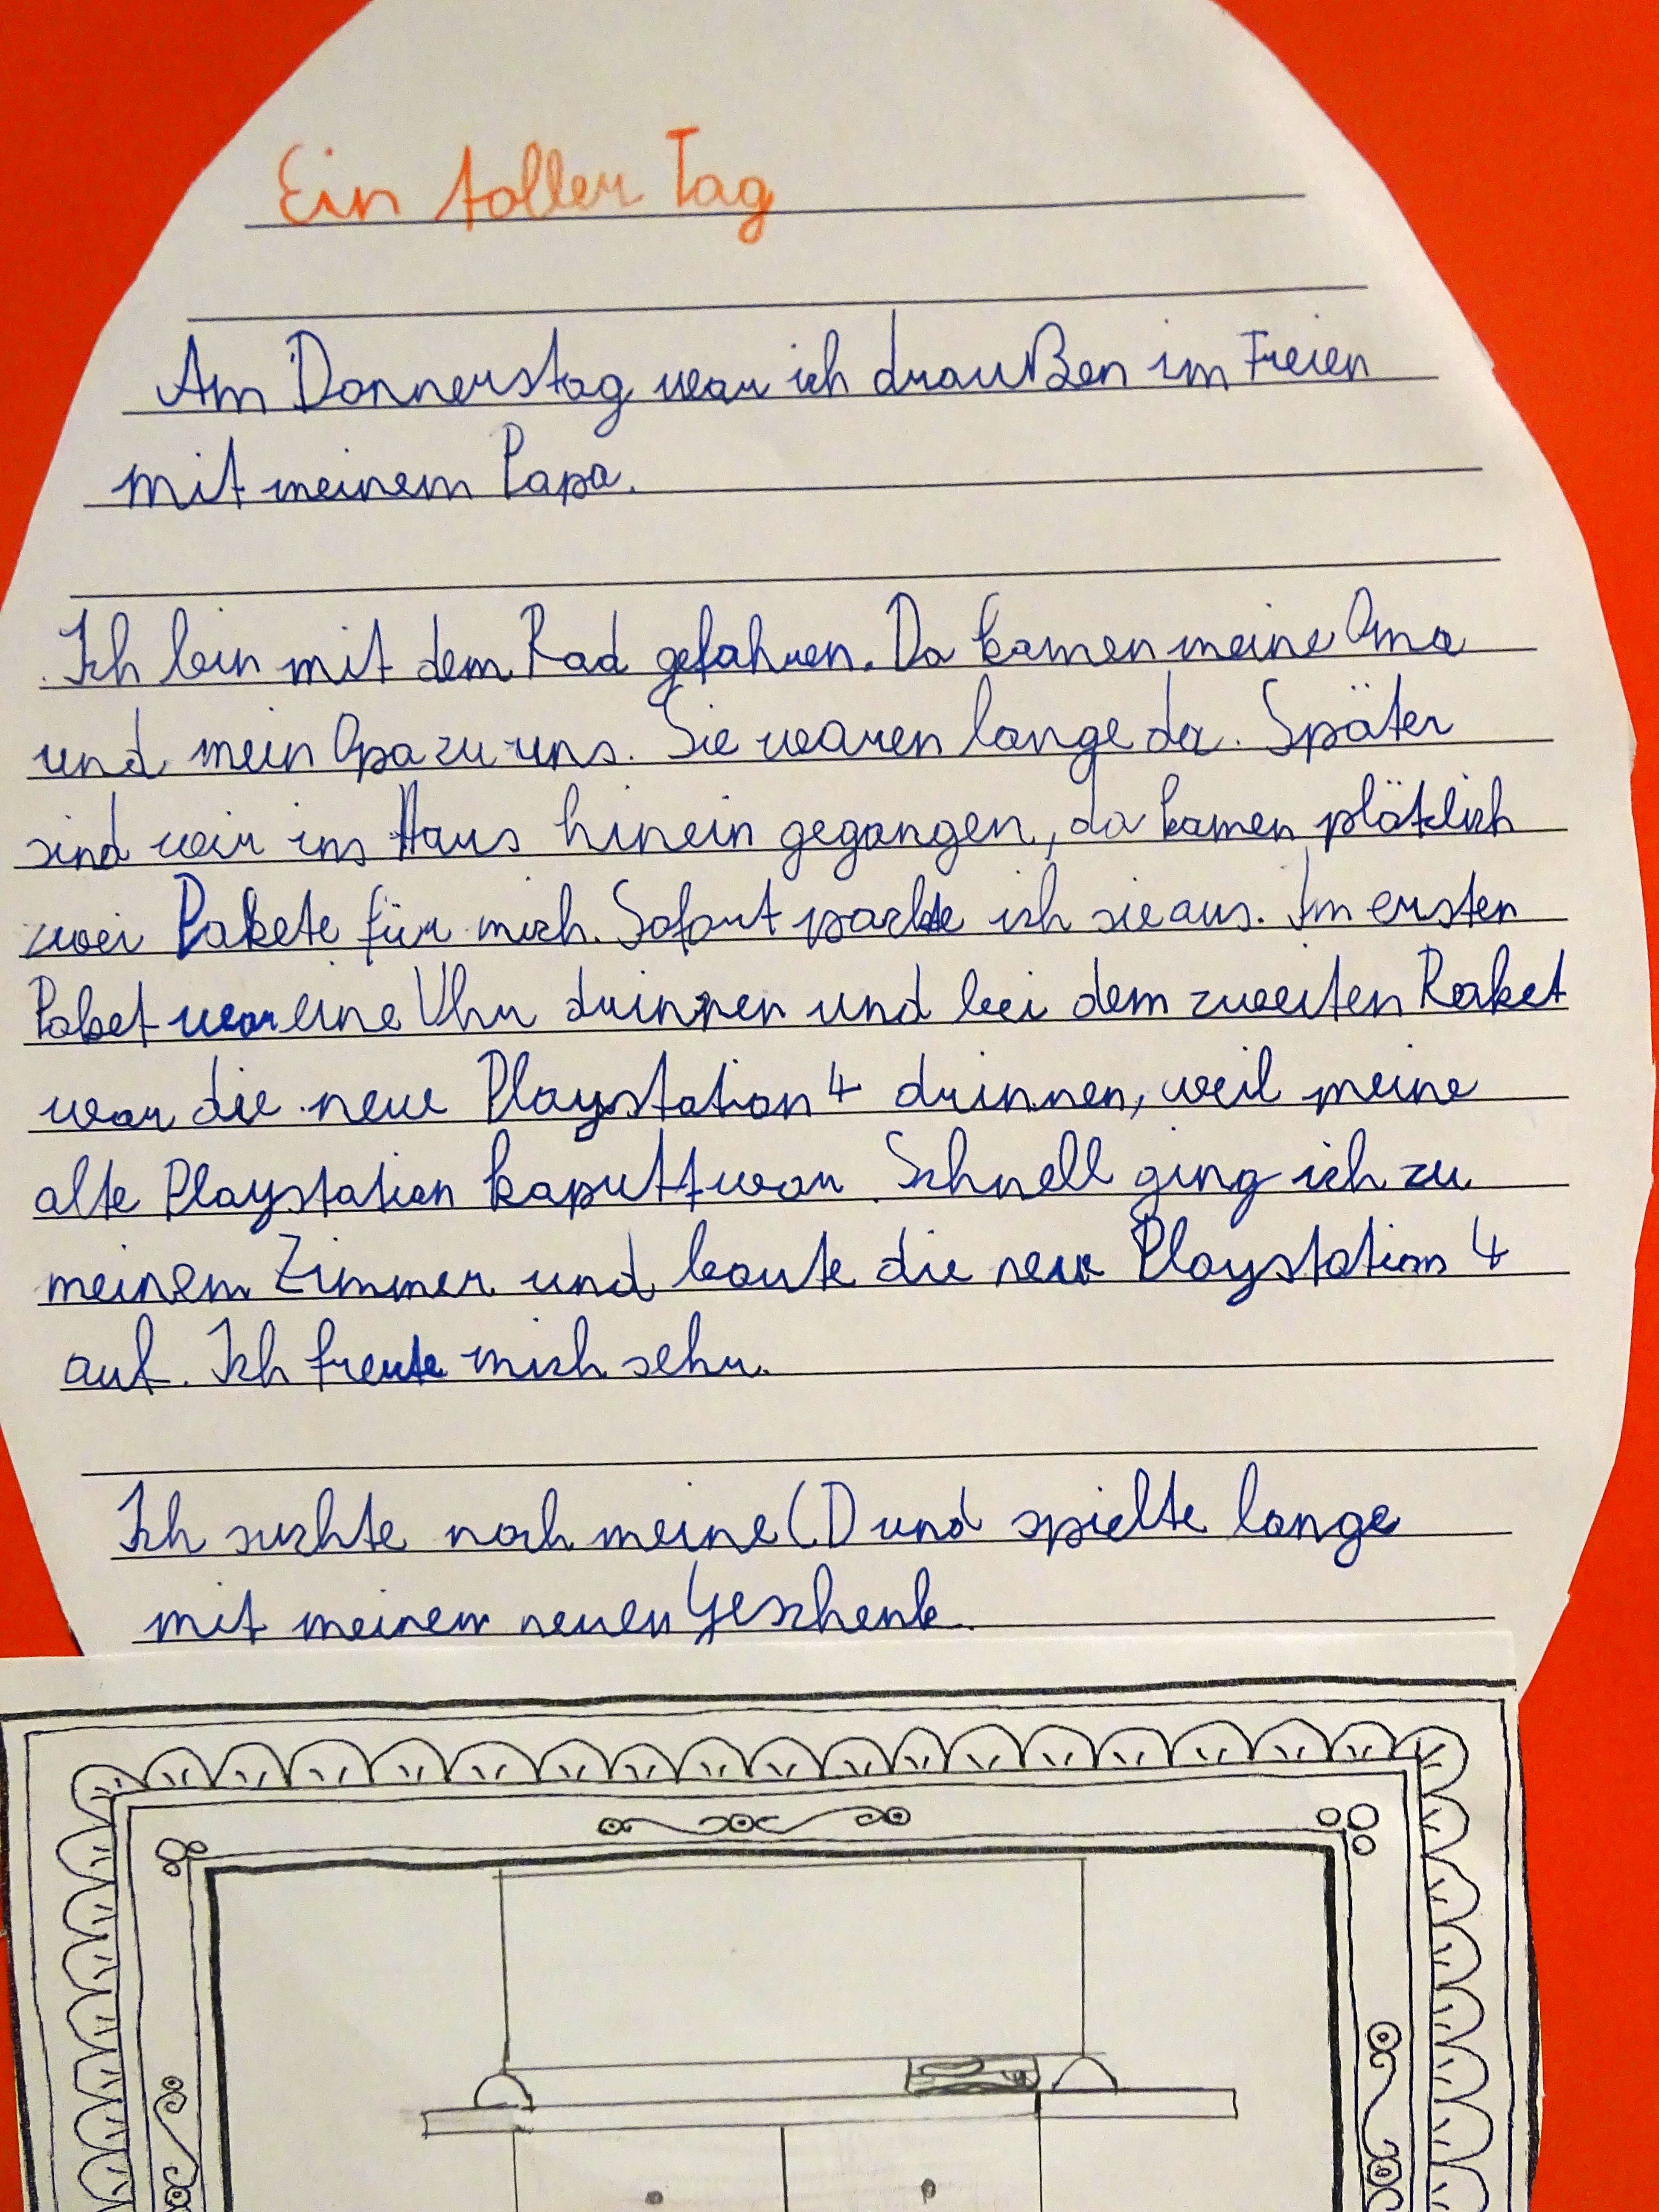 Ein toller Tag
Am Donnerstag war ich draußen im Freien
mit meinem Papa.
Ich bin mit dem Rad gefahren. Da kamen meine Oma
und mein Opa zu uns. Sie waren lange da. Später
sind wir ins Haus hinein gegangen, da kamen plötzlich
zwei Pakete für mich. Sofort packte ich sie aus. Im ersten
Paket war eine Uhr drinnen und bei dem zweiten Paket
war die neue Playstation 4 drinnen, weil meine
alte Playstation kaputt war. Schnell ging ich zu
meinem Zimmer und baute die neue Playstation 4
auf. Ich freute mich sehr.
Ich suchte noch meine CD und spielte lange
mit meinem neuen Geschenk.